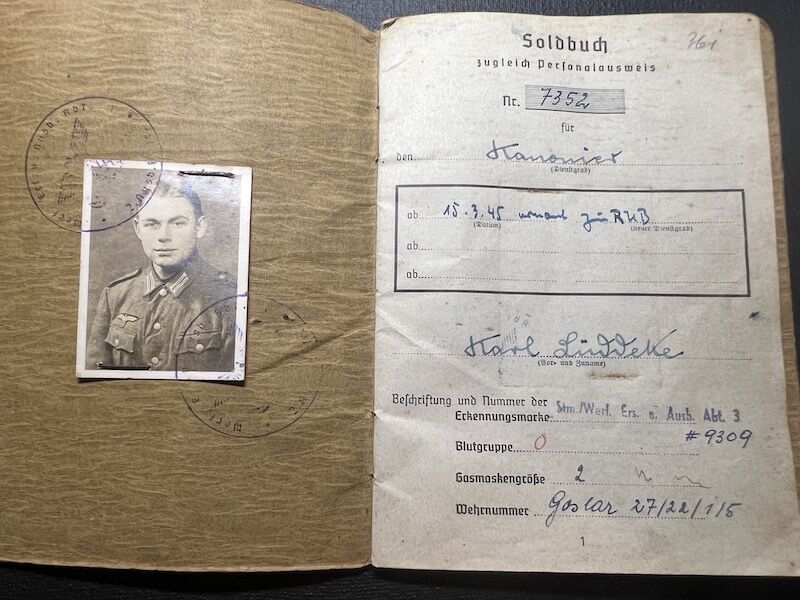 Soldbuch
zugleich Personalausweis
Nr. 7352
für
den Kanonier
(Dienstgrad)
ab 15.3.45 ernannt zu RUB
(Datum) (neuer Dienstgrad)
ab
ab
Karl Lüddeke
(Vor- und Zuname)
Beschriftung und Nummer der
Erkennungsmarke Stm./Werf. Ers. u. Ausb. Abt. 3
# 9309
Blutgruppe O
Gasmaskengröße 2
Wehrnummer Goslar 27/22/1/5
1